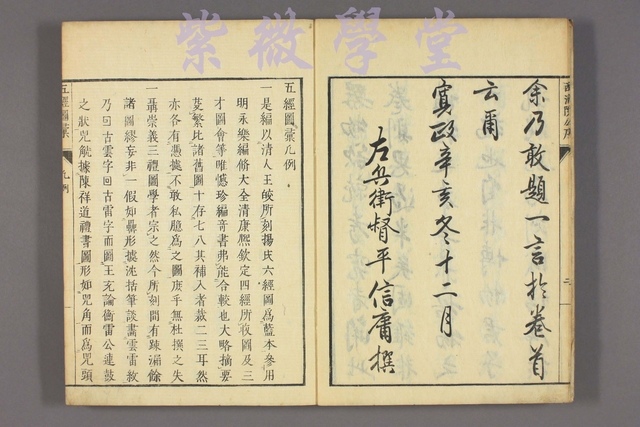 紫微學堂
余乃敢題一言於卷首
云爾
寬政辛亥冬十二月
左兵衛督平信庸撰
五經圖彙凡例
一是編以清人王皜所刻揚氏六經圖爲藍本參用
明永樂編脩大全清康熙欽定四經所收圖及三
才圖會等唯憾珍編奇書弗能合較也大略摘要
芟繁比諸舊圖十存七八其補入者裁二三耳然
亦各有憑據不敢私臆爲之圖庶乎無杜撰之失
一聶崇義三禮圖學者宗之然今所刻間有踈漏餘
諸圖繆妄非一假如彝形據沈括筆談畫雲雷敦
乃曰古雲字回古雷字而圖王充論衡雷公連鼓
之狀兕觥據陳祥道禮書圖形如兕角而爲兕頭
五經圖彙
凡例